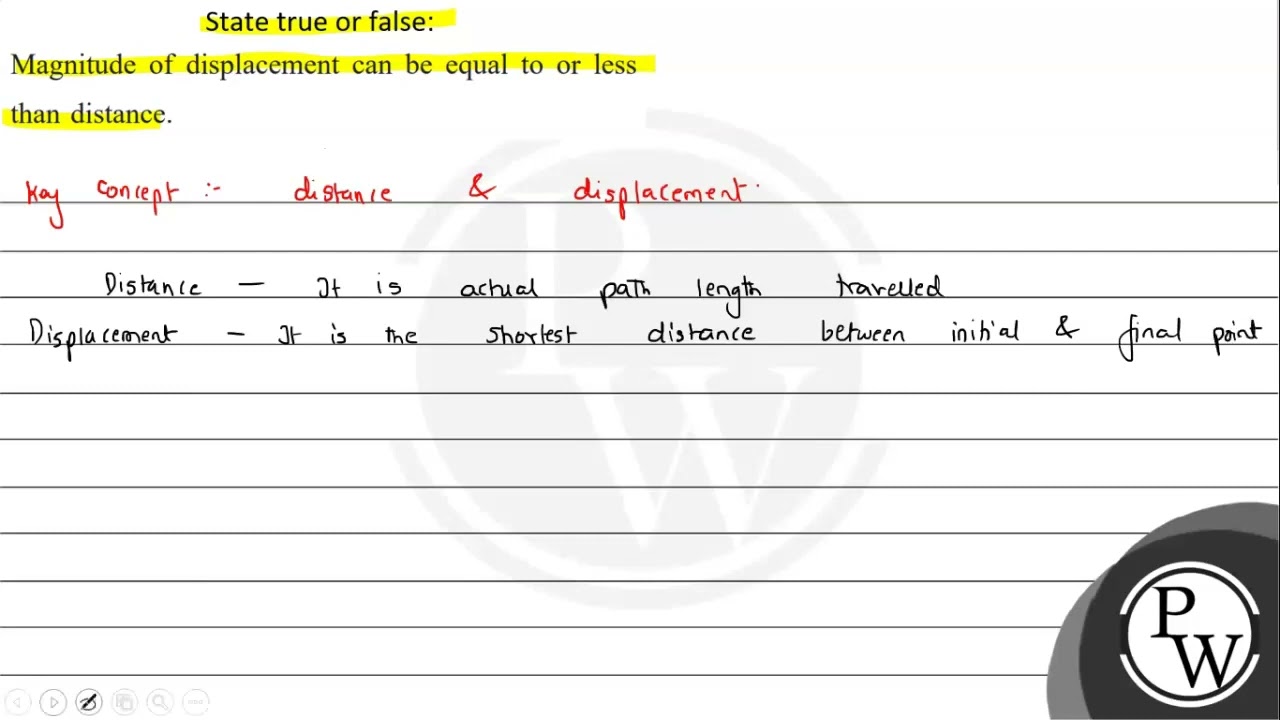 State true or false:
Magnitude of displacement can be equal to or less
than distance.
Key concept :- distance & displacement.
Distance – It is actual path length travelled
Displacement – It is the shortest distance between initial & final point
PW
PW